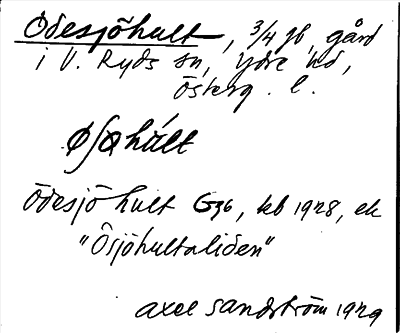 Ödesjöhult, 3/4 gb, gård
i V. Ryds sn, Ydre hd,
Österg. l.
Ödesjöhult G36, kb 1928, ek
"Ösjöhultaliden"
Axel Sandström 1929